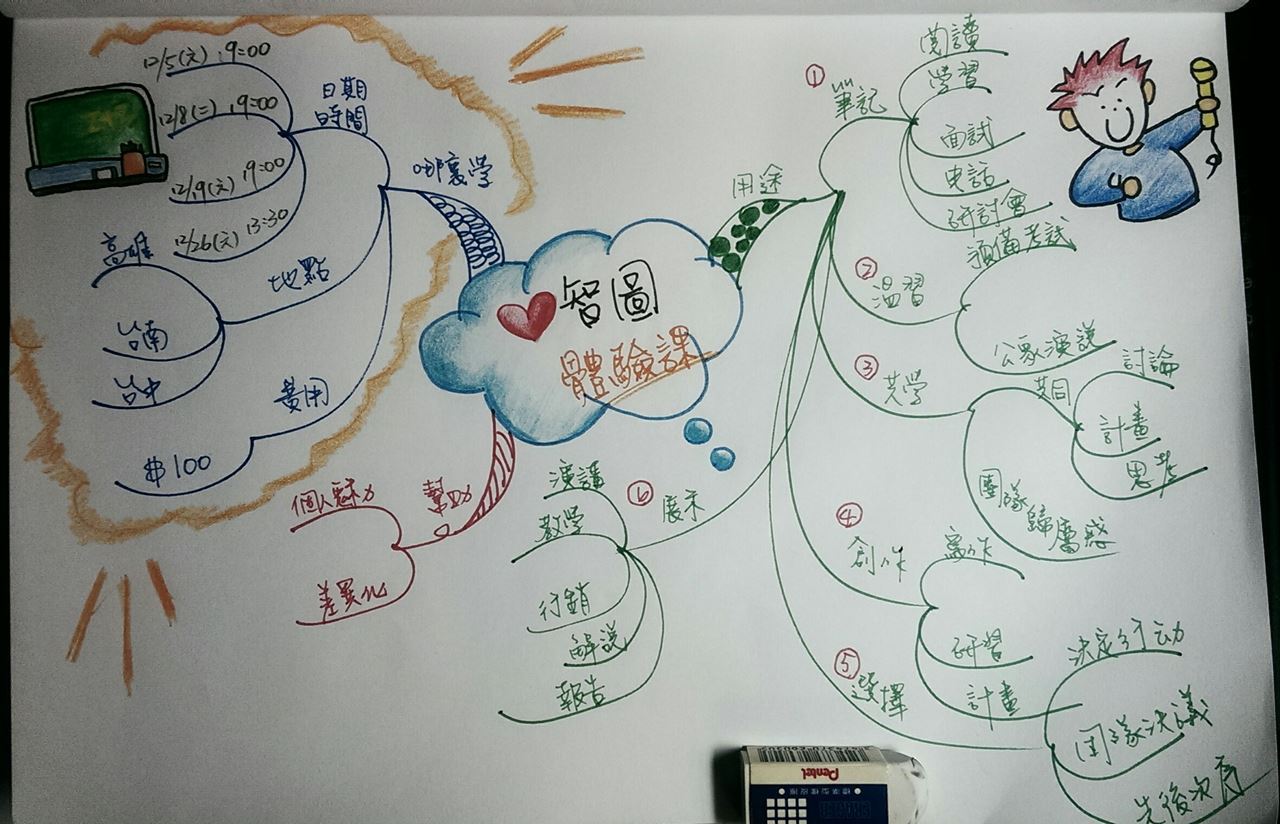 智圖
體驗課
用途
① 筆記
閱讀
学習
面試
電話
研討會
② 溫習
預備考試
公眾演説
③ 共学
共同
討論
計畫
思考
團隊歸屬感
④ 創作
寫作
研習
計畫
⑤ 選擇
決定行动
团隊決議
先後次序
⑥ 展示
演講
教学
行銷
解説
報告
幫助
個人魅力
差異化
哪裏学
日期
時間
12/5(六) 19:00
12/8(二) 19:00
12/19(六) 19:00
12/26(六) 13:30
地點
高雄
台南
台中
費用
$100
Pentel